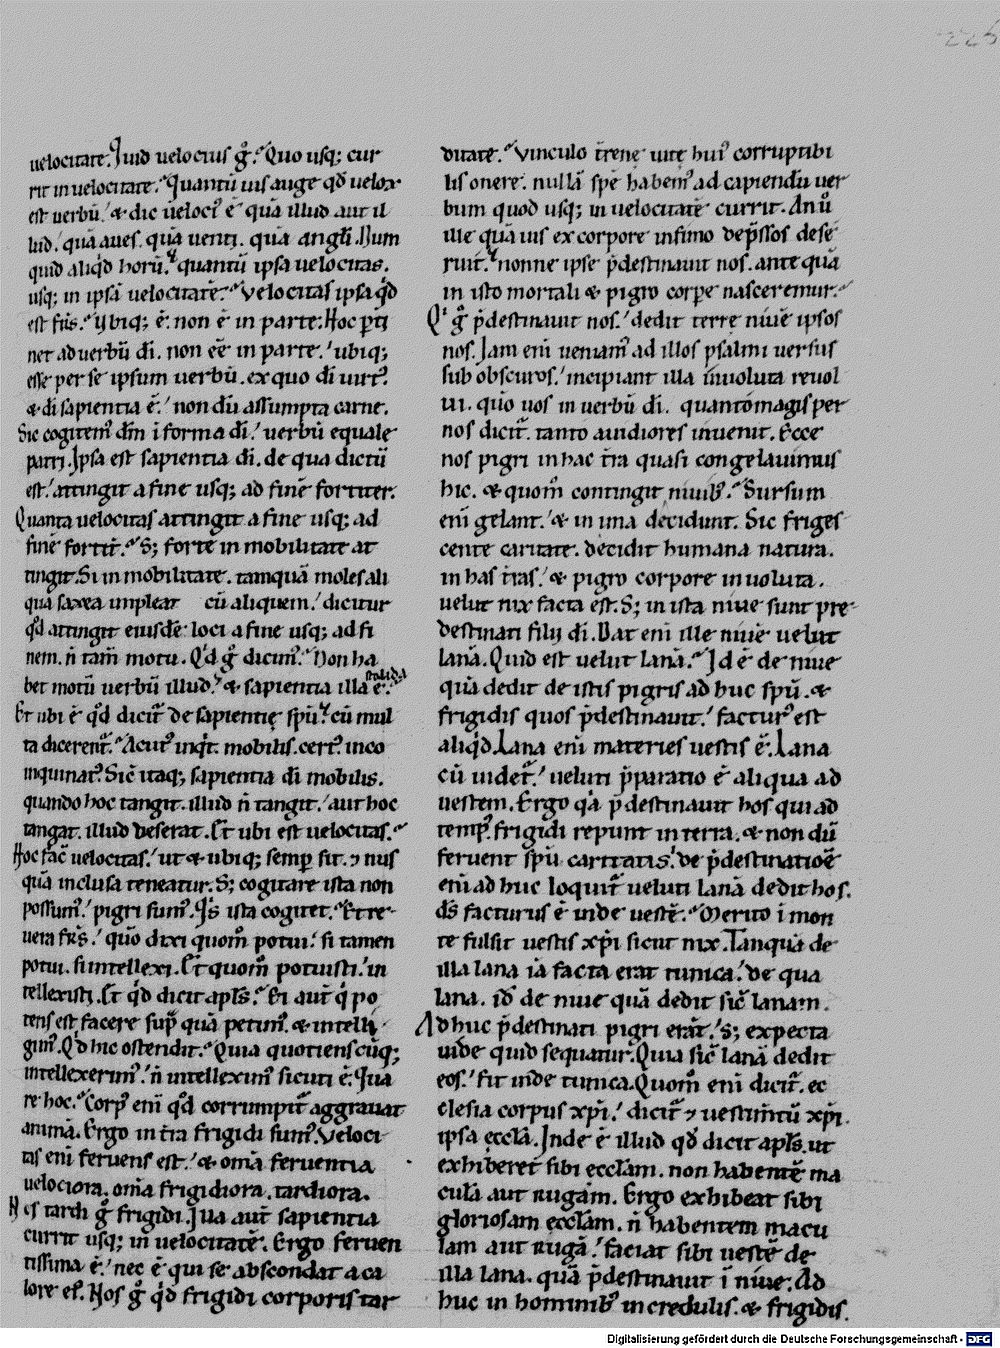 226
uelocitate. Quid uelocius g̊. Quo usq; cur
rit in uelocitate. Quantū uis auge qd̄ uelox
est uerbū. & dic ūelocı᾽ ē quā illud aut il
lud. quā aues. quā uenti. quā angl̄i. Num
quid aliq̇d horū. quantū ipsa uelocitas.
usq; in ipsā uelocitatē. Velocitas ipsa q̇d
est fr̄s. Vbiq; ē. non ē in parte. Hoc ꝑti
net ad uerbū dī. non eē in parte. ubiq;
esse per se ipsum uerbū. ex quo dī uirt᾽.
& dī sapientia ē. non dū assumpta carne.
Sic cogitem᾽ dm̄ ī forma dī. uerbū equale
patri. Ipsa est sapientia dī. de qua dictū
est. attingit a fine usq; ad finē fortiter.
Quanta uelocitas attingit a fine usq; ad
finē fortit̄. S; forte in mobilitate at
tingit. Si in mobilitate. tamquā moles ali
qua saxea impleat cū aliquem. dicitur
qd̄ attingit eiusdē loci a fine usq; ad fi
nem. n̄ tam̄ motu. Qd̄ g̊ dicim᾽. Non ha
bet motū uerbū illud. & sapientia illa ē stolida
Et ubi ē qd̄ dicit᷑ de sapientię spū. cū mul
ta dicerent᷑. Acut᾽ inqt̄. mobilis. cert᾽ inco
inquinat᾽. Sic̄ itaq; sapientia dī mobilis.
quando hoc tangit. illud n̄ tangit. aut hoc
tangat. illud deserat. Et ubi est uelocitas.
Hoc fac̄ uelocitas. ut & ubiq; semꝑ sit. ⁊ nus
quā inclusa teneatur. S; cogitare ista non
possum᾽. pigri sum᾽. Q̇s ista cogitet. Et re
uera fr̄s. quō dixi quom̄ potui. si tamen
potui. si intellexi. Et quom̄ potuisti. in
tellexisti. Et qd̄ dicit apl̄s. Ei aut̄ q̇ po
tens est facere sup̄ quā petim᾽. & intelli
gim᾽. Qd̄ hic ostendit. Quia quotienscūq;
intellexerim᾽. n̄ intellexim᾽ sicuti ē. Qua
re hoc. Corp᾽ eni qd̄ corrumpit᷑ aggrauat
animā. Ergo in tr̄a frigidi sum᾽. Veloci
tas eni feruens est. & om̄a feruentia
uelociora. om̄a frigidiora. tardiora.
Nos tardi g̊ frigidi. Illa aut̄ sapientia
currit usq; in uelocitatē. Ergo feruen
tissima ē. nec ē qui se abscondat a ca
lore ei᾽. Nos g̊ q̇d frigidi corporis tar
ditate. vinculo tr̄enę uitę hui᾽ corruptibi
lis onere. nullā spē habem᾽ ad capiendū uer
bum quod usq; in uelocitatē currit. An ů
ille quā uis ex corpore infimo dep̄ssos dese
ruit. nonne ipse p̄destinauit nos. ante quā
in isto mortali & pigro corpe nasceremur.
Q᾽ g̊ p̄destinauit nos. dedit terrę niuē ipsos
nos. Iam eni ueniam᾽ ad illos psalmi uersus
sub obscuros. incipiant illa inuoluta reuol
ui. quō uos in uerbū dī. quantōmagis per
nos dicit᷑. tanto auidiores inuenit. Ecce
nos pigri in hac tr̄a quasi congelauimus
hic. & quom̄ contingit niuib᾽. Sursum
eni gelant. & in ima decidunt. Sic friges
cente caritate. decidit humana natura.
in has tr̄as. & pigro corpore inuoluta.
uelut nix facta est. S; in ista niue sunt pre
destinati filij dī. Dat eni ille niuē uelut
lanā. Quid est uelut lanā. Id ē de niue
quā dedit de istis pigris ad huc spū. &
frigidis quos p̄destinauit. factur᾽ est
aliq̇d. Lana eni materies uestis ē. Lana
cū uidet᷑. ueluti p̄paratio ē aliqua ad
uestem. Ergo qa p̄destinauit hos qui ad
temp᾽ frigidi repunt in terra. & non dū
feruent spū caritatis. de p̄destinatioē
eni ad huc loquit᷑ ueluti lanā dedit hos.
ds̄ facturus ē inde uestē. Merito ī mon
te fulsit uestis xp̄i sicut nix. Tanquā de
illa lana iā facta erat tunica. de qua
lana. id̄ de niue quā dedit sic̄ lanam.
Ad huc p̄destinati pigri erāt. s; expecta
uide quid sequatur. Quia sic̄ lanā dedit
eos. fit inde tunica. Quom̄ eni dicit᷑. ec
clesia corpus xp̄i. dicit᷑ ⁊ uestim̄tū xp̄i.
ipsa eccl̄a. Inde ē illud qd̄ dicit apl̄s. ut
exhiberet sibi eccl̄am. non habentē ma
culā aut rugam. Ergo exhibeat sibi
gloriosam eccl̄am. n̄ habentem macu
lam aut rugā. faciat sibi uestē de
illa lana. quā p̄destinauit ī niue. Ad
huc in hominib᾽ incredulis. & frigidis.
Digitalisierung gefördert durch die Deutsche Forschungsgemeinschaft - DFG